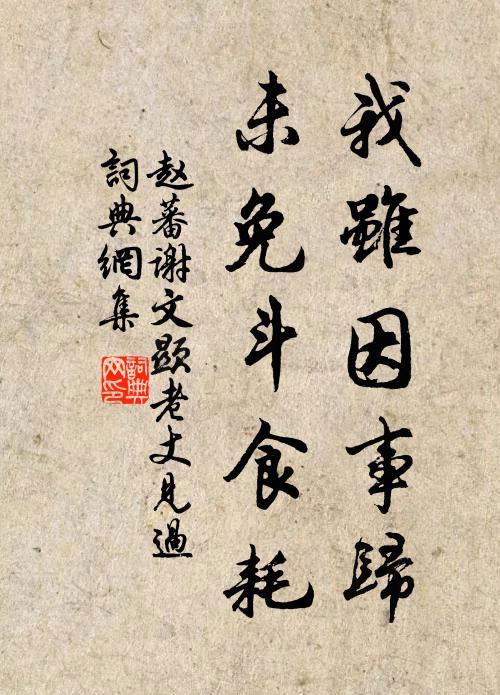 我雖因事歸
未免斗食耗
赵蕃谢文顯老丈見過
詞典網集
詞典
网印